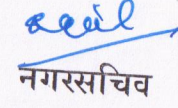 नगरसचिव